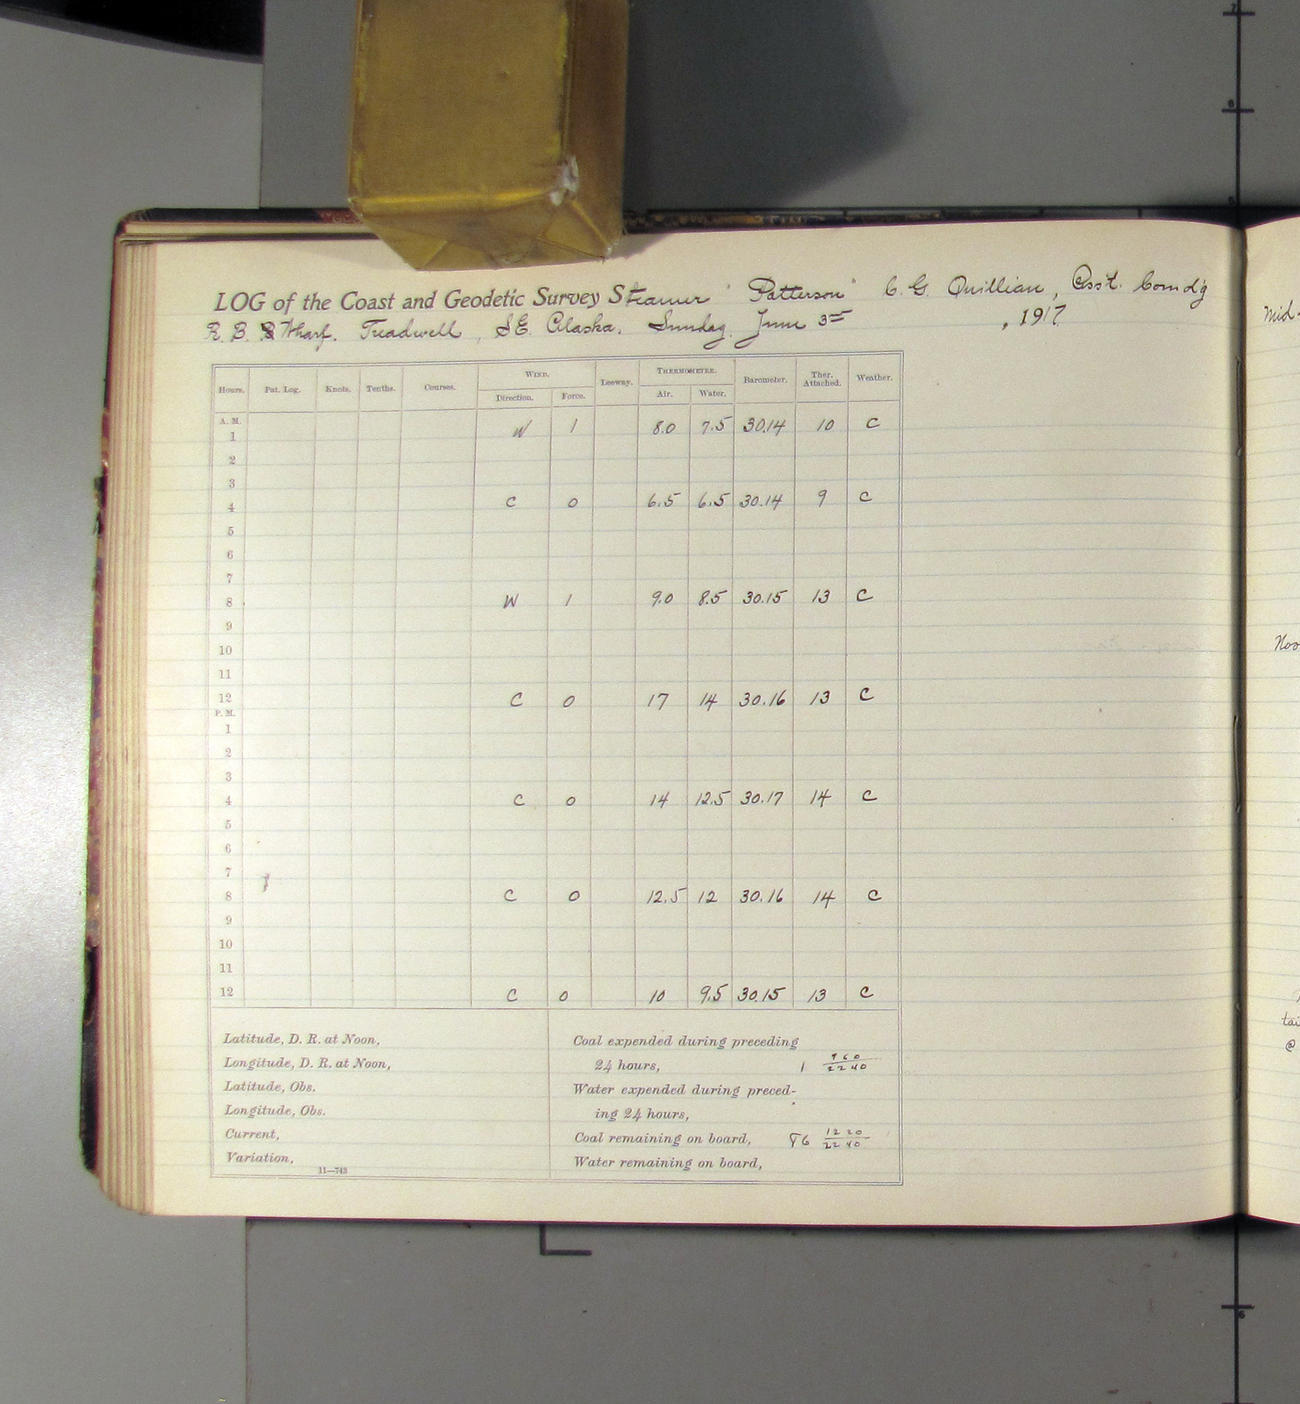 LOG of the Coast and Geodetic Survey Steamer "Patterson" C. G. Quillian, Asst. Comd'g
R. B. Wharf, Treadwell, SE. Alaska, Sunday, June 3rd, 1917
Hours. Pat. Log. Knots. Tenths. Courses. WIND. Direction. Force. Leeway. THERMOMETER. Air. Water. Barometer. Ther. Attached. Weather.
A. M.
1 W 1 8.0 7.5 30.14 10 C
2
3
4 C 0 6.5 6.5 30.14 9 C
5
6
7
8 W 1 9.0 8.5 30.15 13 C
9
10
11
12 C 0 17 14 30.16 13 C
P. M.
1
2
3
4 C 0 14 12.5 30.17 14 C
5
6
7
8 C 0 12.5 12 30.16 14 C
9
10
11
12 C 0 10 9.5 30.15 13 C
Latitude, D. R. at Noon,
Longitude, D. R. at Noon,
Latitude, Obs.
Longitude, Obs.
Current,
Variation,
11—743
Coal expended during preceding
24 hours, 1 960/2240
Water expended during preced-
ing 24 hours,
Coal remaining on board, 86 1220/2240
Water remaining on board,
Mid-
Noo
tai
@